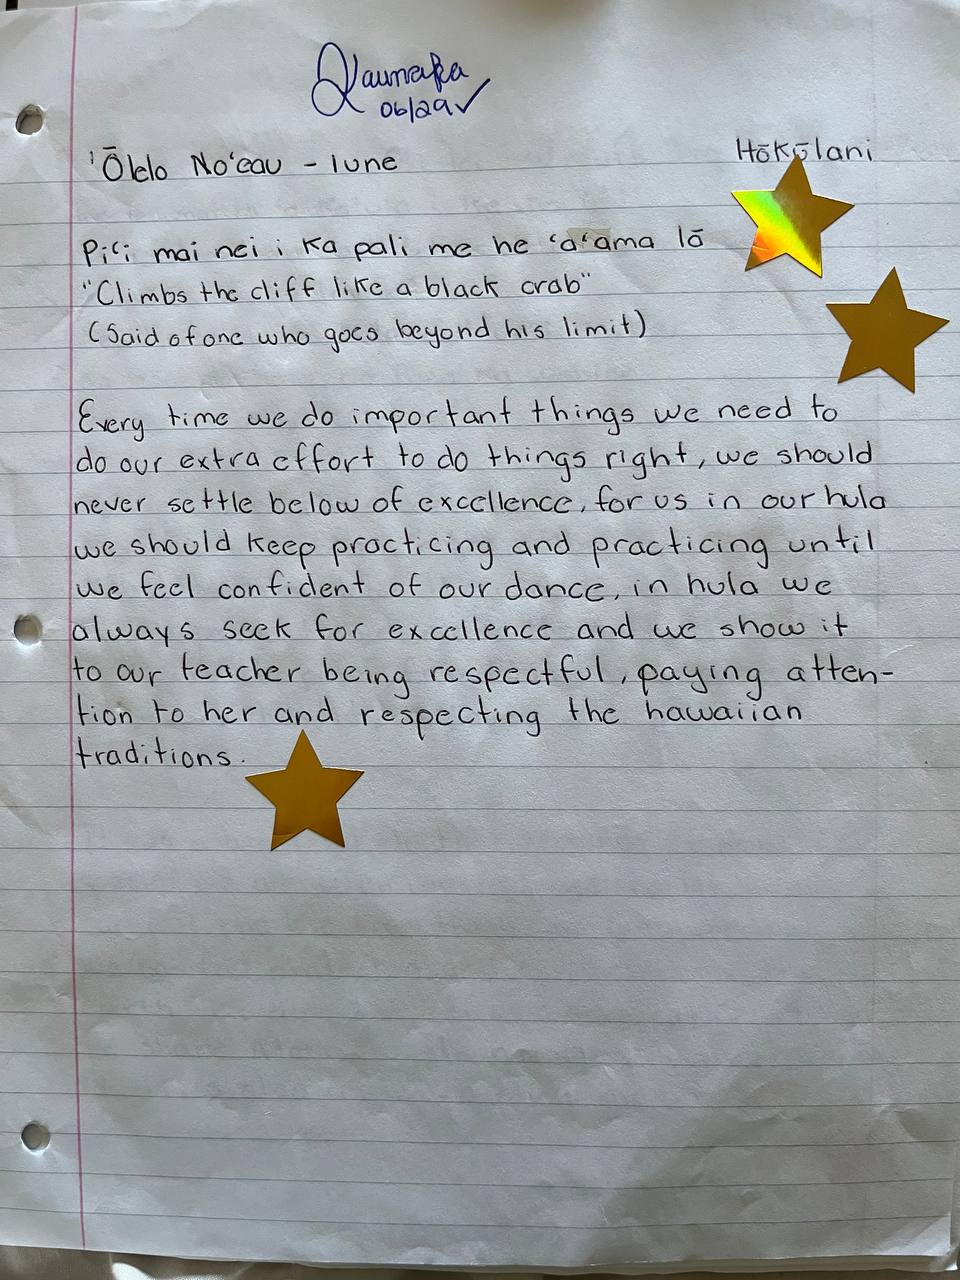 Kaumaka
06/29✓
'Ōlelo No'eau - Iune
Hōkūlani
Pi'i mai nei i ka pali me he 'a'ama lā
"Climbs the cliff like a black crab"
(Said of one who goes beyond his limit)
Every time we do important things we need to
do our extra effort to do things right, we should
never settle below of excellence, for us in our hula
we should keep practicing and practicing until
we feel confident of our dance, in hula we
always seek for excellence and we show it
to our teacher being respectful, paying atten-
tion to her and respecting the hawaiian
traditions.